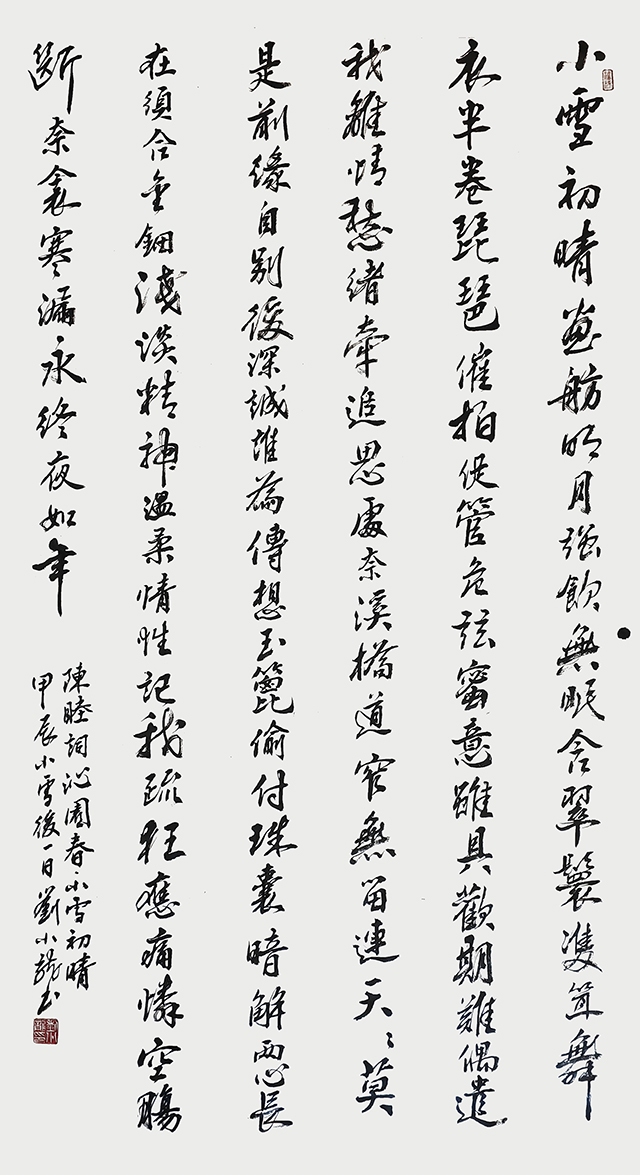 小雪初晴畫舫明月強飲無眠念翠鬟雙耸舞
衣半卷琵琶催拍促管危弦蜜意雖具歡期難偶遣
我離情愁緒牽追思處奈溪橋道窄無留連天々莫
是前緣自别後深誠誰為傳想玉篦偷付珠囊暗解兩心長
在須合金鈿淺淡精神溫柔情性記我疏狂應痛憐空腸
斷奈衾寒漏永終夜如年
陳睦詞沁園春·小雪初晴
甲辰小雪後一日劉小龍書